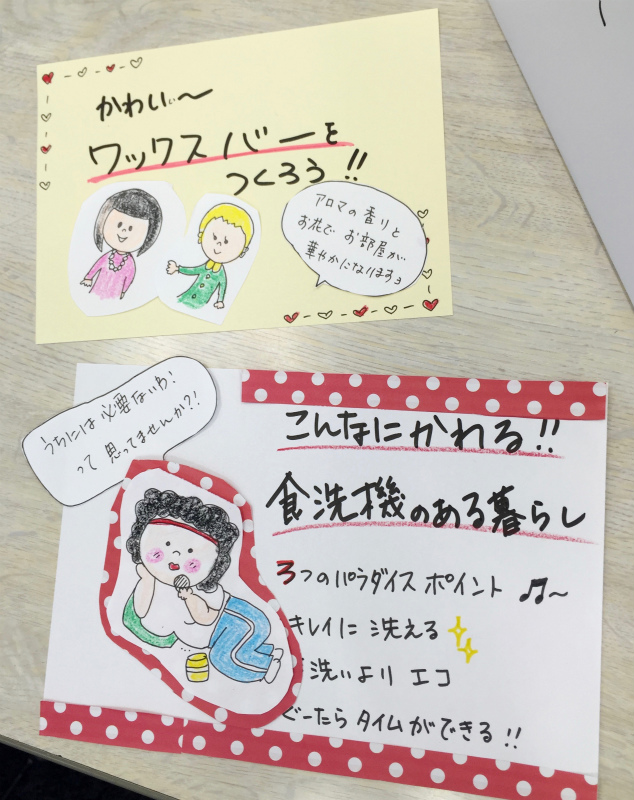 かわいぃ〜
ワックスバーを
つくろう!!
アロマの香りと
お花で お部屋が
華やかになります♪
うちには必要ないわ!
って 思ってませんか?!
こんなにかわる!!
食洗機のある暮らし
3つのパラダイス ポイント ♫〜
キレイに 洗える
洗いより エコ
ぐーたら タイムができる!!